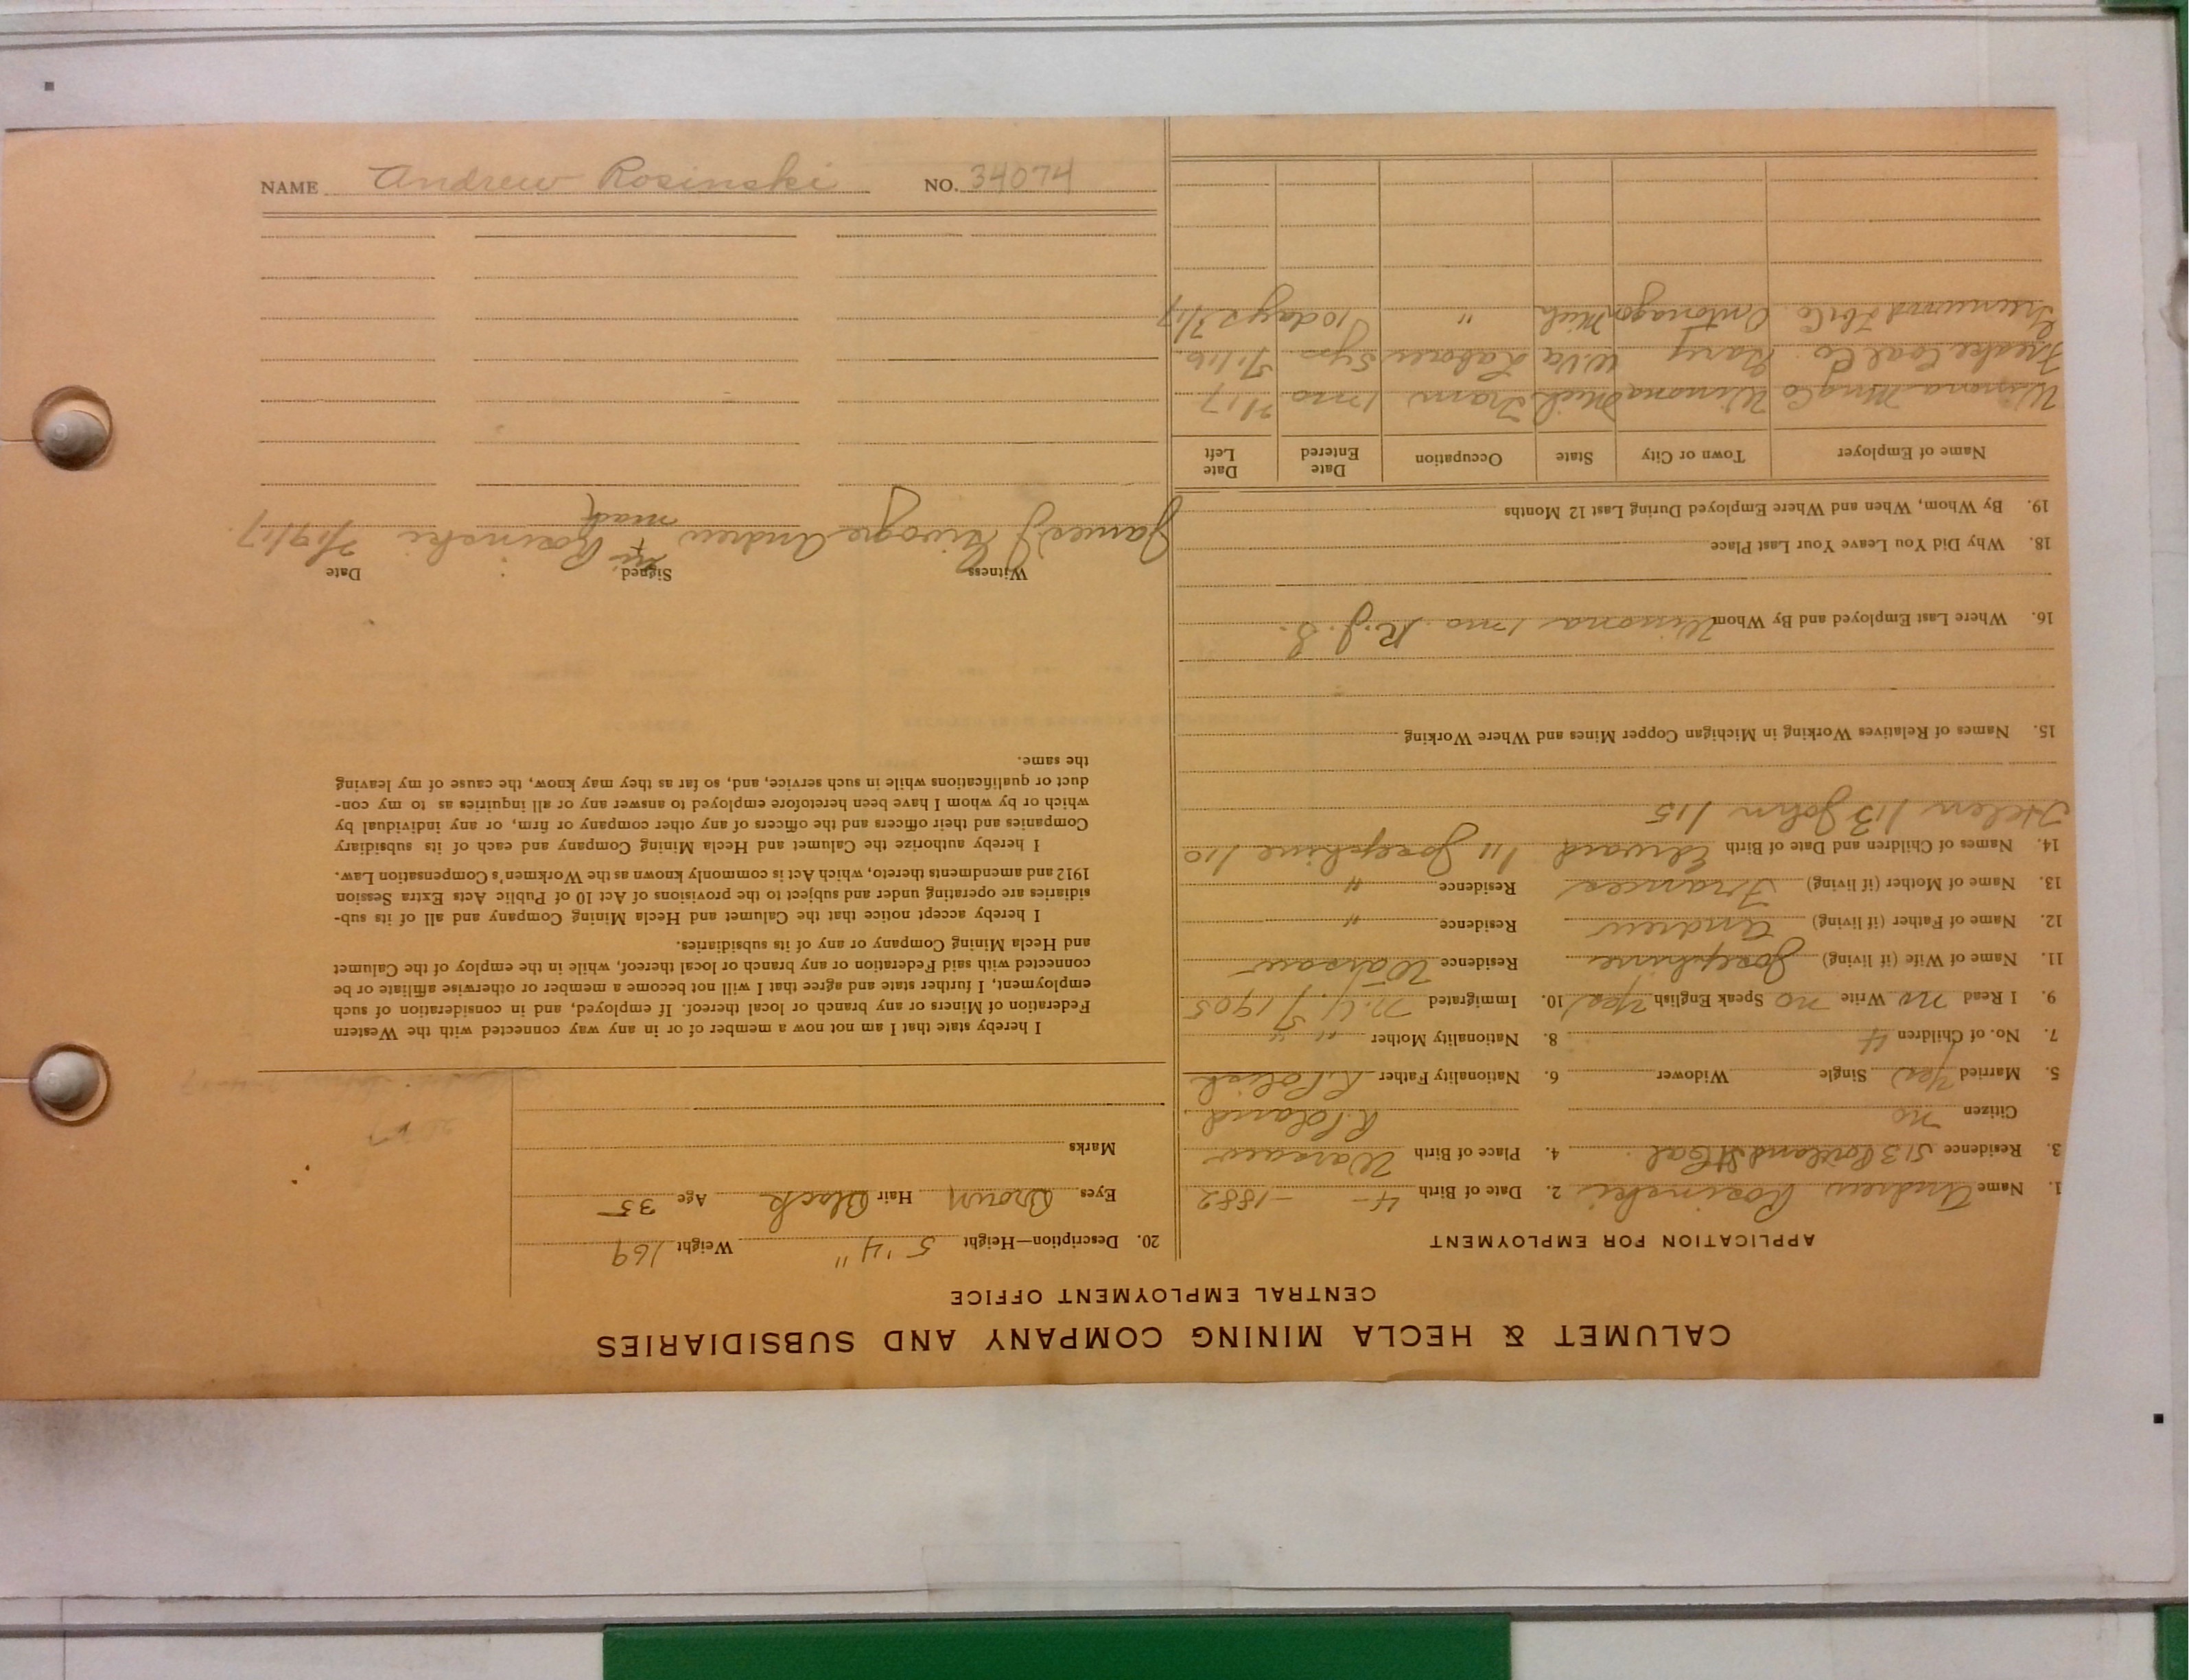 CALUMET & HECLA MINING COMPANY AND SUBSIDIARIES
CENTRAL EMPLOYMENT OFFICE
APPLICATION FOR EMPLOYMENT
1. Name Andrew Rosinski 2. Date of Birth 4 - - 1882
3. Residence 513 Portland St Cal. 4. Place of Birth Warsaw
Citizen no R. Poland
5. Married Yes Single Widower 6. Nationality Father R. Polish
7. No. of Children 4 8. Nationality Mother " "
9. I Read no Write no Speak English Yes 10. Immigrated N.Y. 5/1905
11. Name of Wife (if living) Josephine Residence Warsaw
12. Name of Father (if living) Andrew Residence "
13. Name of Mother (if living) Frances Residence "
14. Names of Children and Date of Birth Edward 1/11 Josephine 1/10
Helen 1/13 John 1/15
15. Names of Relatives Working in Michigan Copper Mines and Where Working
16. Where Last Employed and By Whom Winona 1 mo. R.J.S.
18. Why Did You Leave Your Last Place
19. By Whom, When and Where Employed During Last 12 Months
Name of Employer Town or City State Occupation Date Entered Date Left
Winona Mng Co Winona Mich Tram 1 mo 7/17
Coal Co. Gary W Va Laborer 5 yrs 5/1/16
Greenwood Lbr Co Ontonagon Mich " 10 days 7/17
20. Description—Height 5' 4" Weight 169
Eyes Brown Hair Black Age 35
Marks
I hereby state that I am not now a member of or in any way connected with the Western
Federation of Miners or any branch or local thereof. If employed, and in consideration of such
employment, I further state and agree that I will not become a member or otherwise affiliate or be
connected with said Federation or any branch or local thereof, while in the employ of the Calumet
and Hecla Mining Company or any of its subsidiaries.
I hereby accept notice that the Calumet and Hecla Mining Company and all of its sub-
sidiaries are operating under and subject to the provisions of Act 10 of Public Acts Extra Session
1912 and amendments thereto, which Act is commonly known as the Workmen's Compensation Law.
I hereby authorize the Calumet and Hecla Mining Company and each of its subsidiary
Companies and their officers and the officers of any other company or firm, or any individual by
which or by whom I have been heretofore employed to answer any or all inquiries as to my con-
duct or qualifications while in such service, and, so far as they may know, the cause of my leaving
the same.
Witness Signed Date
his
James J Andrew + Rosinski 7/19/17.
mark
NAME Andrew Rosinski NO. 34074